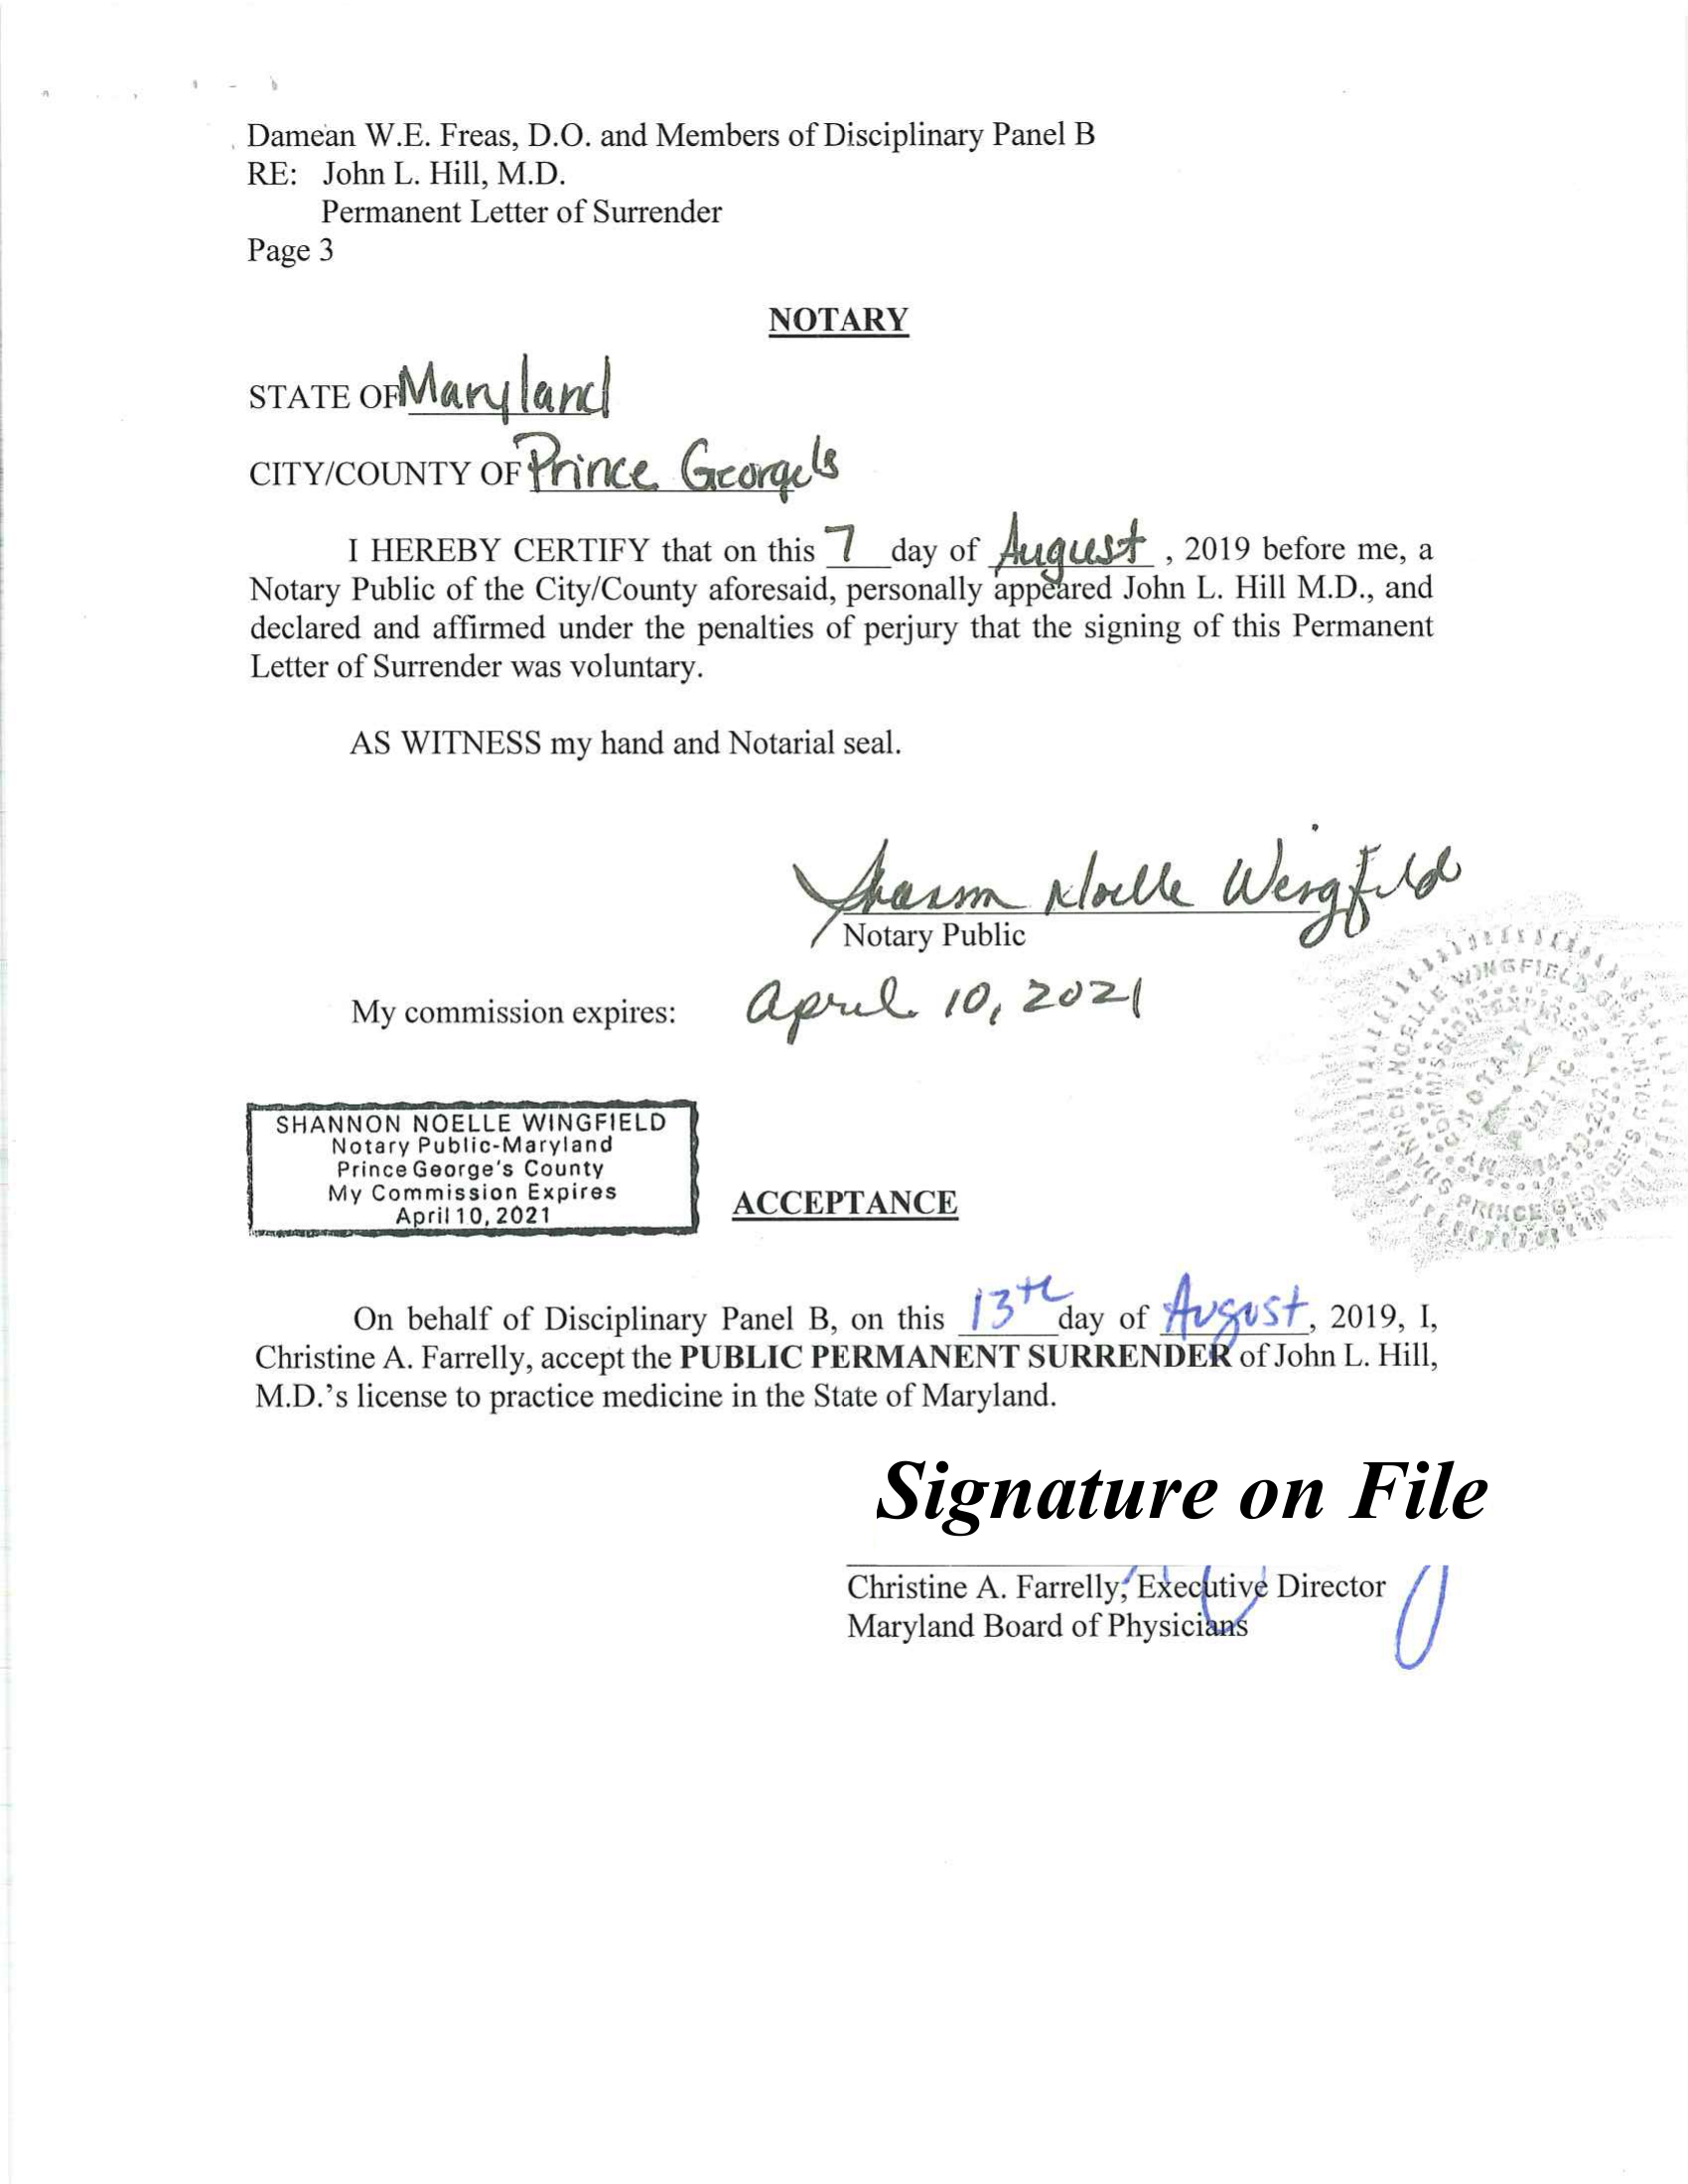 Damean W.E. Freas, D.O. and Members of Disciplinary Panel B
RE: John L. Hill, M.D.
Permanent Letter of Surrender
Page 3
NOTARY
STATE OF Maryland
CITY/COUNTY OF Prince George's
I HEREBY CERTIFY that on this 7 day of August, 2019 before me, a
Notary Public of the City/County aforesaid, personally appeared John L. Hill M.D., and
declared and affirmed under the penalties of perjury that the signing of this Permanent
Letter of Surrender was voluntary.
AS WITNESS my hand and Notarial seal.
Shannon Noelle Wingfield
Notary Public
My commission expires: April 10, 2021
SHANNON NOELLE WINGFIELD
Notary Public-Maryland
Prince George's County
My Commission Expires
April 10, 2021
SHANNON NOELLE WINGFIELD
PRINCE GEORGE'S
NOTARY
PUBLIC
ACCEPTANCE
On behalf of Disciplinary Panel B, on this 13th day of August, 2019, I,
Christine A. Farrelly, accept the PUBLIC PERMANENT SURRENDER of John L. Hill,
M.D.'s license to practice medicine in the State of Maryland.
Signature on File
Christine A. Farrelly, Executive Director
Maryland Board of Physicians